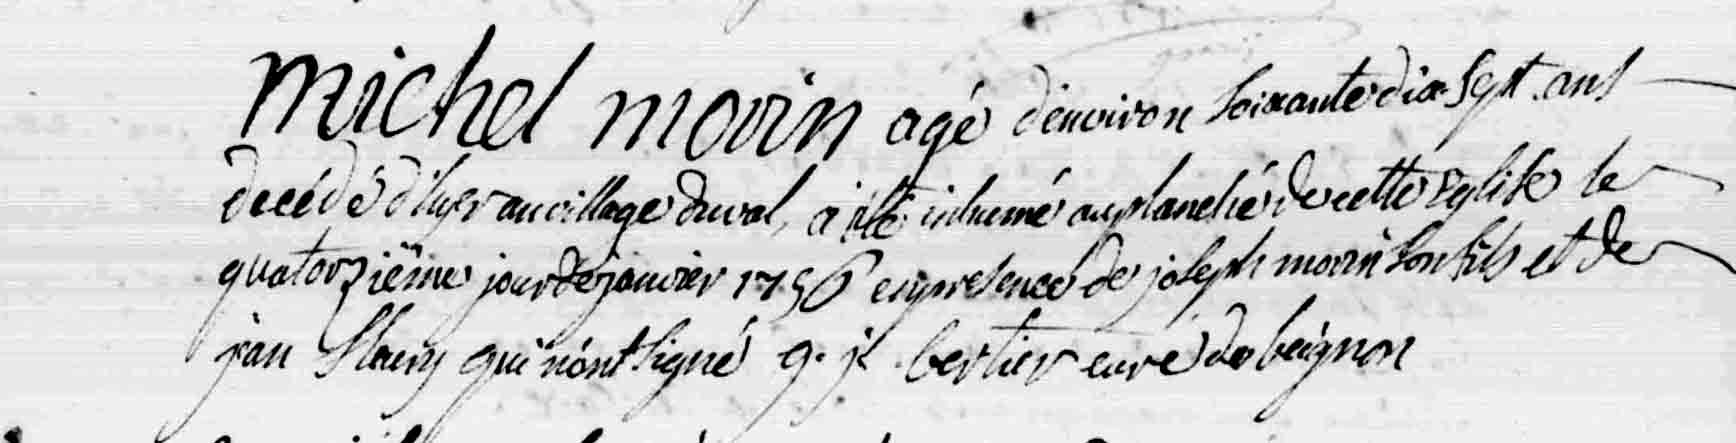 Michel morin agé d'environ soixante dix sept ans
decédé d'hyer au village du val, a été inhumé au planché de cette eglise le
quatorzième jour de janvier 1756 en presence de joseph morin son fils et de
jan fleury qui n'ont signé g. j. bertier curé de beignon